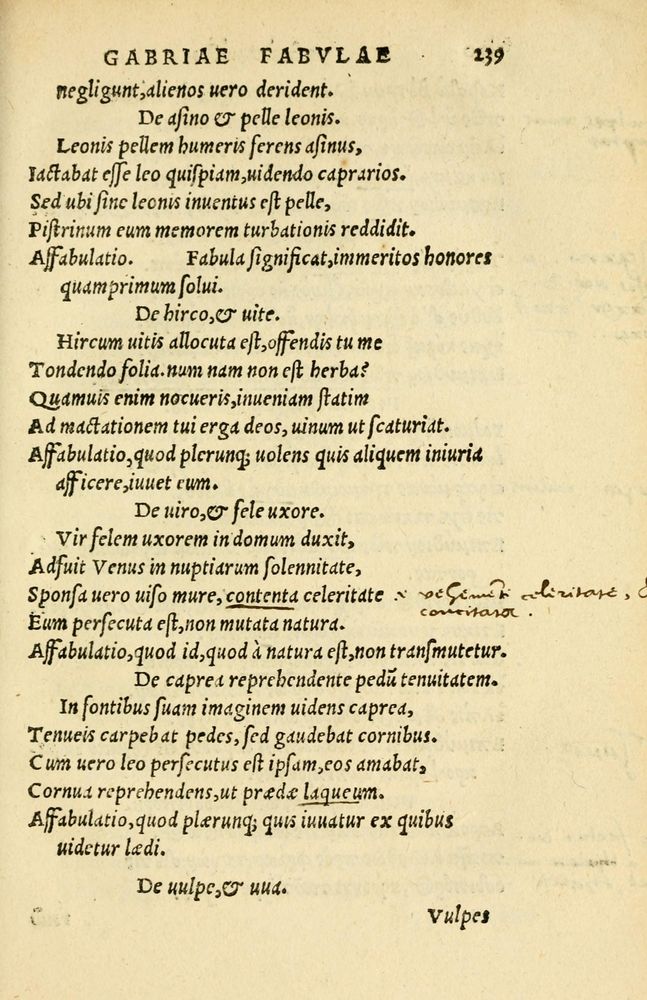 GABRIAE FABVLAE 239
negligunt, alienos uero derident.
De asino & pelle leonis.
Leonis pellem humeris ferens asinus,
Iactabat esse leo quispiam, uidendo caprarios.
Sed ubi sine leonis inuentus est pelle,
Pistrinum eum memorem turbationis reddidit.
Affabulatio. Fabula significat, immeritos honores
quamprimum solui.
De hirco, & uite.
Hircum uitis allocuta est, offendis tu me
Tondendo folia. num nam non est herba?
Quamuis enim nocueris, inueniam statim
Ad mactationem tui erga deos, uinum ut scaturiat.
Affabulatio, quod plerunq; uolens quis aliquem iniuria
afficere, iuuet eum.
De uiro, & fele uxore.
Vir felem uxorem in domum duxit,
Adfuit Venus in nuptiarum solennitate,
Sponsa uero uiso mure, contenta celeritate x celeritate,
Eum persecuta est, non mutata natura. concitata.
Affabulatio, quod id, quod à natura est, non transmutetur.
De caprea reprehendente pedũ tenuitatem.
In fontibus suam imaginem uidens caprea,
Tenueis carpebat pedes, sed gaudebat cornibus.
Cum uero leo persecutus est ipsam, eos amabat,
Cornua reprehendens, ut prædæ laqueum.
Affabulatio, quod plærunq; quis iuuatur ex quibus
uidetur lædi.
De uulpe, & uua.
Vulpes